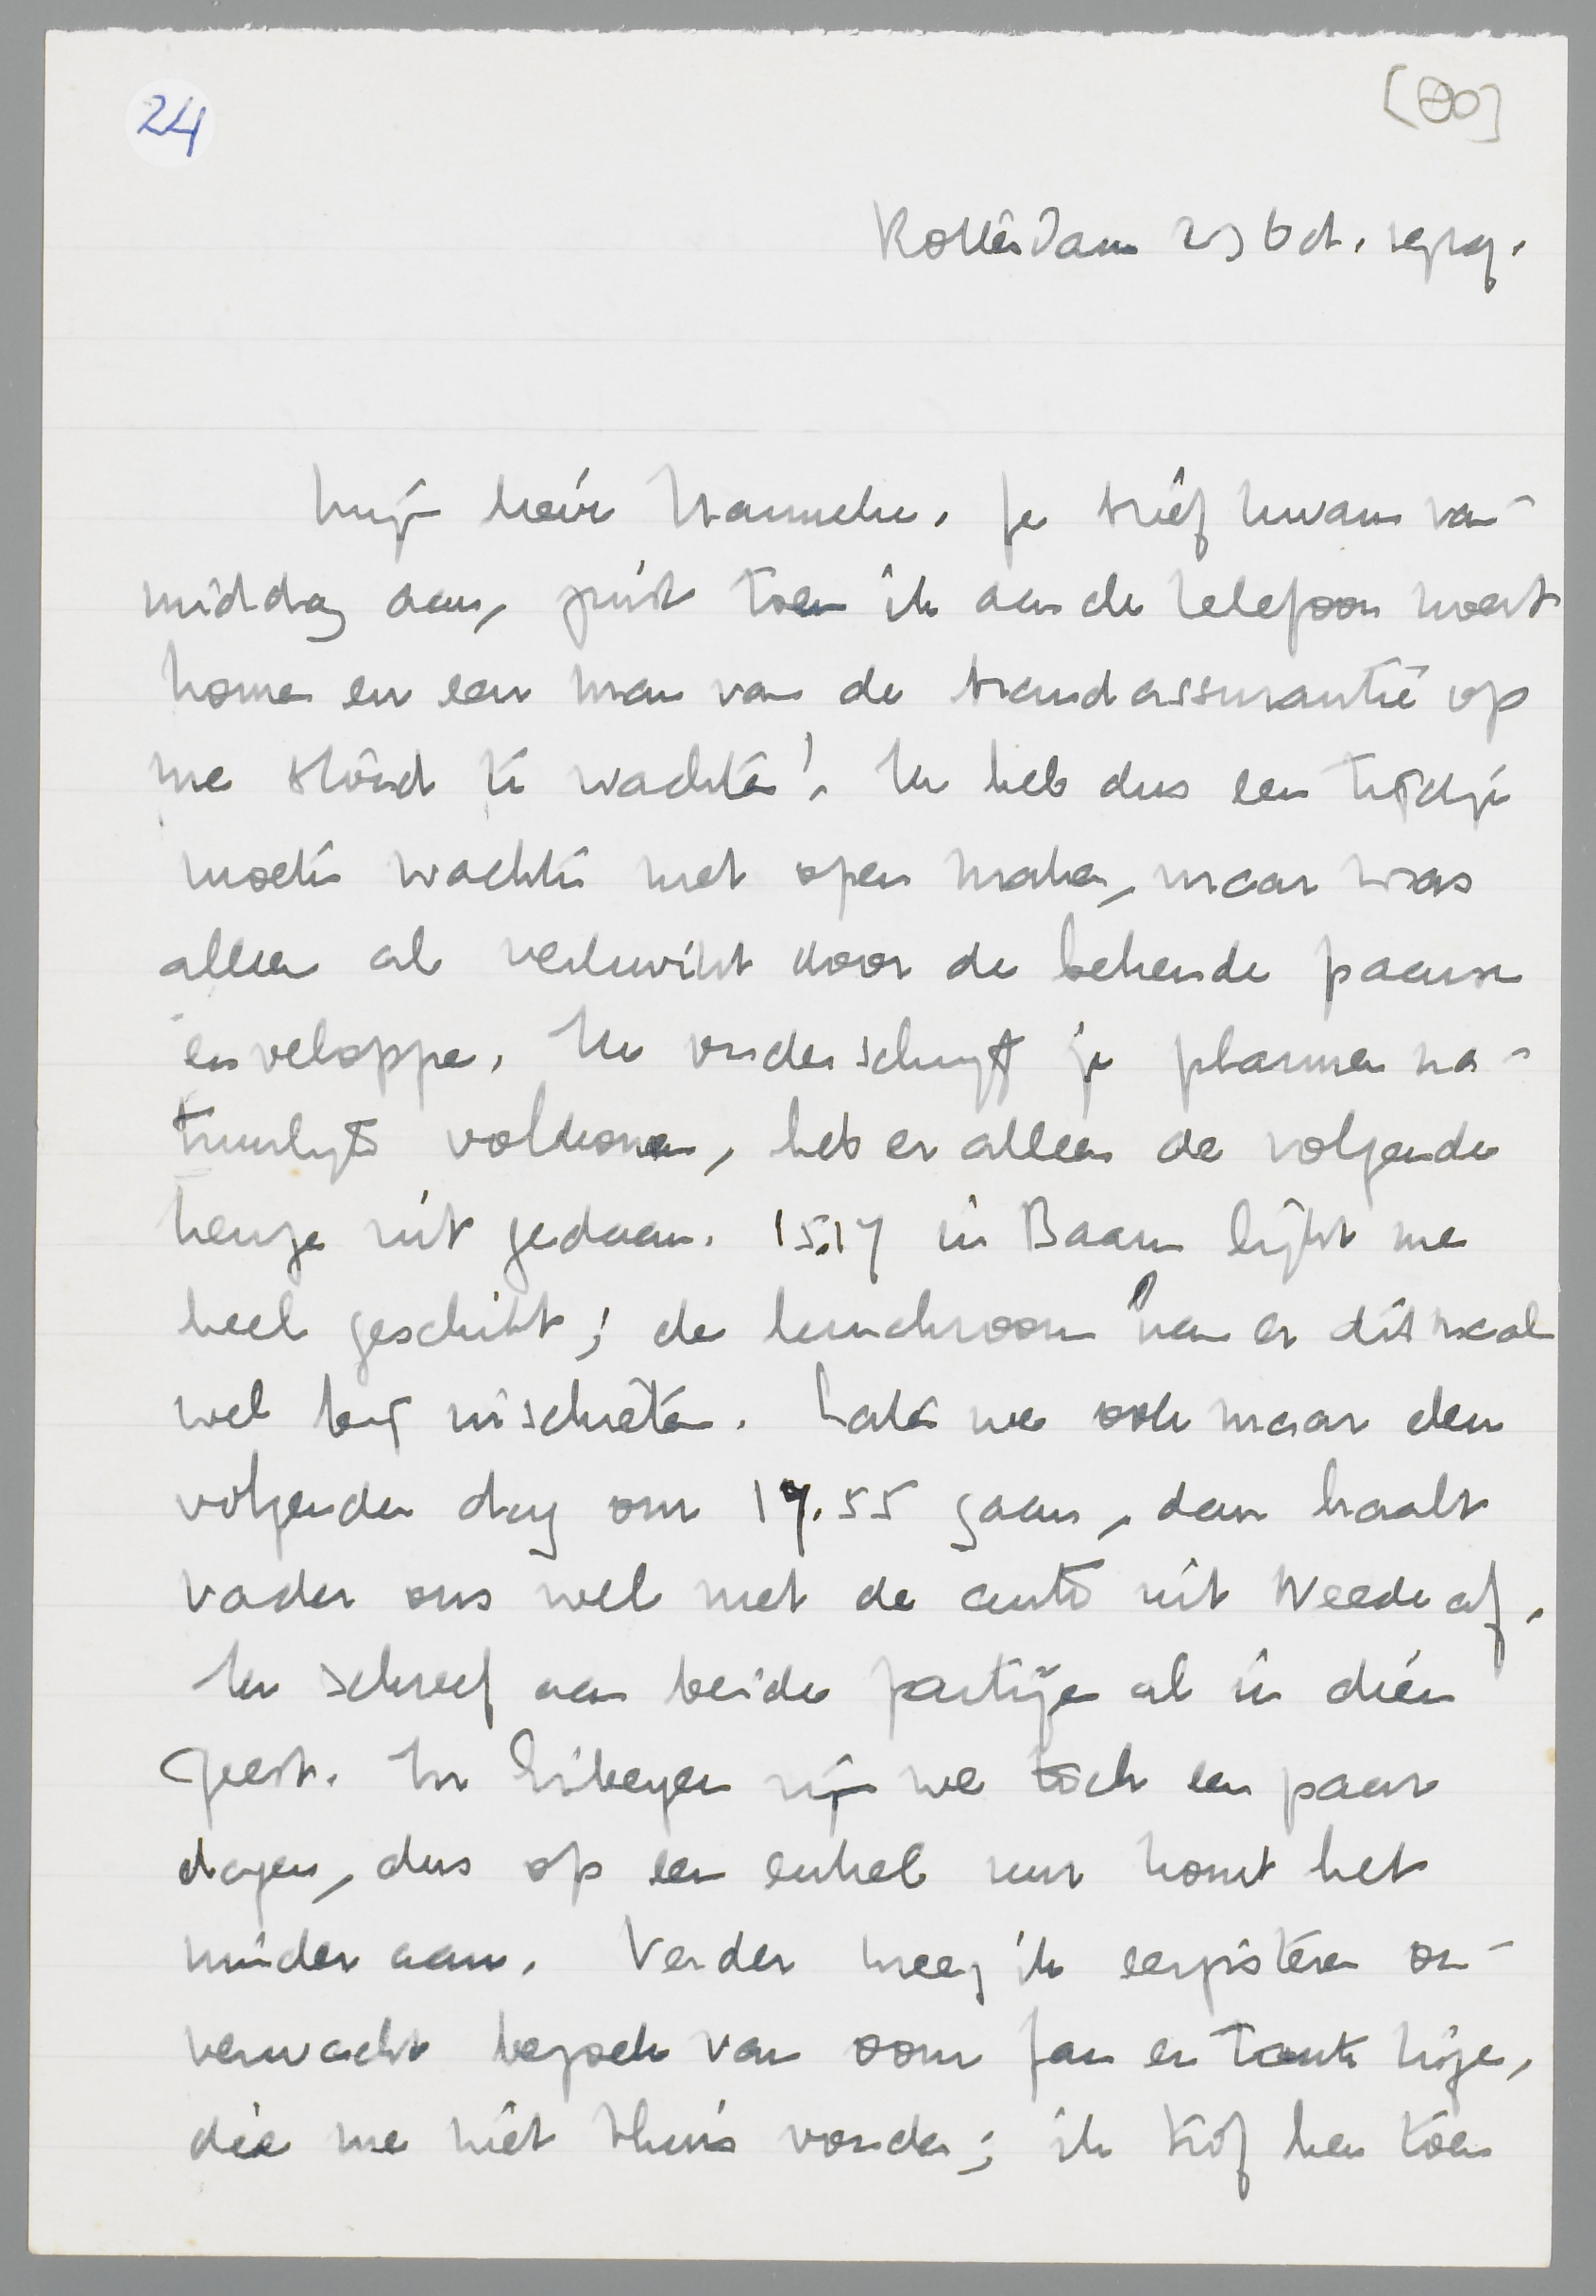 24
Rotterdam 23 Oct. 1939.
Mijn lieve Hanneke. Je brief kwam van-
middag aan, juist toen ik aan de telefoon moest
komen en een man van de brandassurantie op
me stond te wachten! Ik heb dus een tijdje
moeten wachten met open maken, maar was
alleen al verkwikt door de bekende paarse
enveloppe. Ik onderschrijf je plannen na-
tuurlijk volkomen, heb er alleen de volgende
keuze uit gedaan. 15.17 in Baarn lijkt me
heel geschikt; de lunchroom kan er ditmaal
wel bij inschieten. Laten we ook maar den
volgenden dag om 17.55 gaan, dan haalt
vader ons wel met de auto uit Weede af.
Ik schreef aan beide partijen al in dien
geest. In zijn we toch een paar
dagen, dus op een enkel uur komt het
minder aan. Verder kreeg ik eergisteren on-
verwacht bezoek van oom Jan en Tante
die me niet thuis vonden; ik trof hen toen